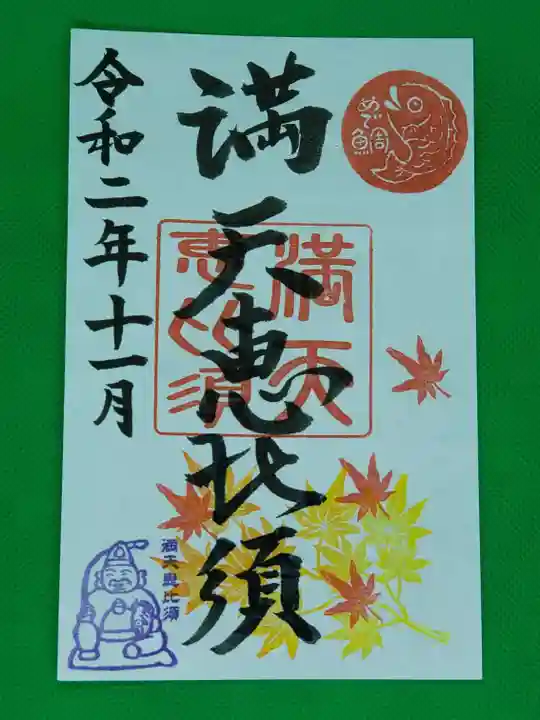 めで鯛
満天恵比須
満天
恵比須
令和二年十一月
満天恵比須